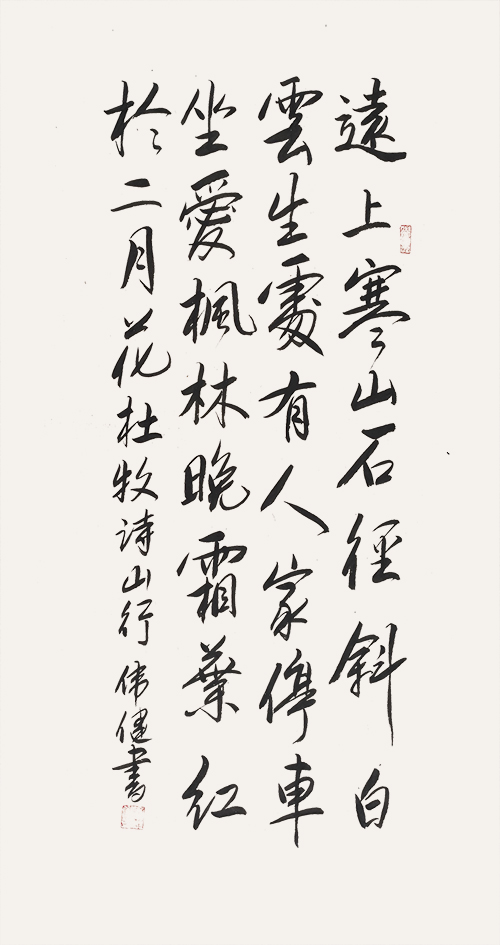 遠上寒山石徑斜白
雲生處有人家停車
坐愛楓林晚霜葉紅
於二月花杜牧诗山行 伟健書